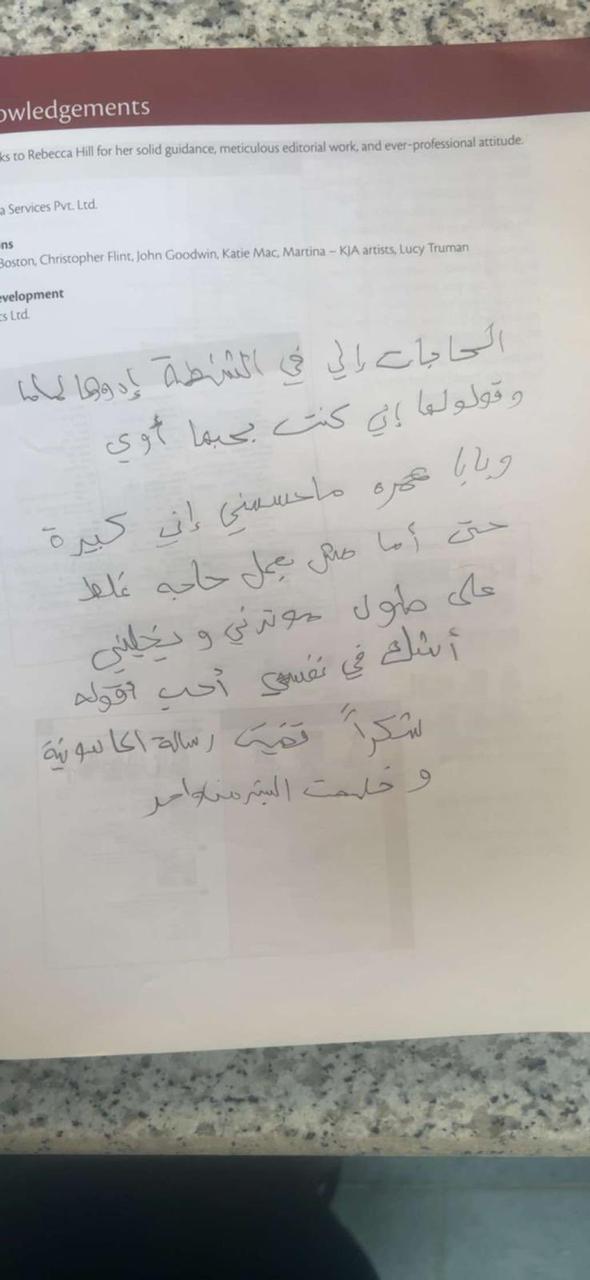 owledgements
ks to Rebecca Hill for her solid guidance, meticulous editorial work, and ever-professional attitude.
a Services Pvt. Ltd.
ns
Boston, Christopher Flint, John Goodwin, Katie Mac, Martina – KJA artists, Lucy Truman
evelopment
s Ltd.
الحاجات إلي في الشنطة إدوها لماما
وقولولها إني كنت بحبها أوي
وبابا عمره ماحسسني إني كبيرة
حتى أما مش بعمل حاجه غلط
على طول و يخليني
أشك في نفسي أحب أقوله
شكراً رسالة
و